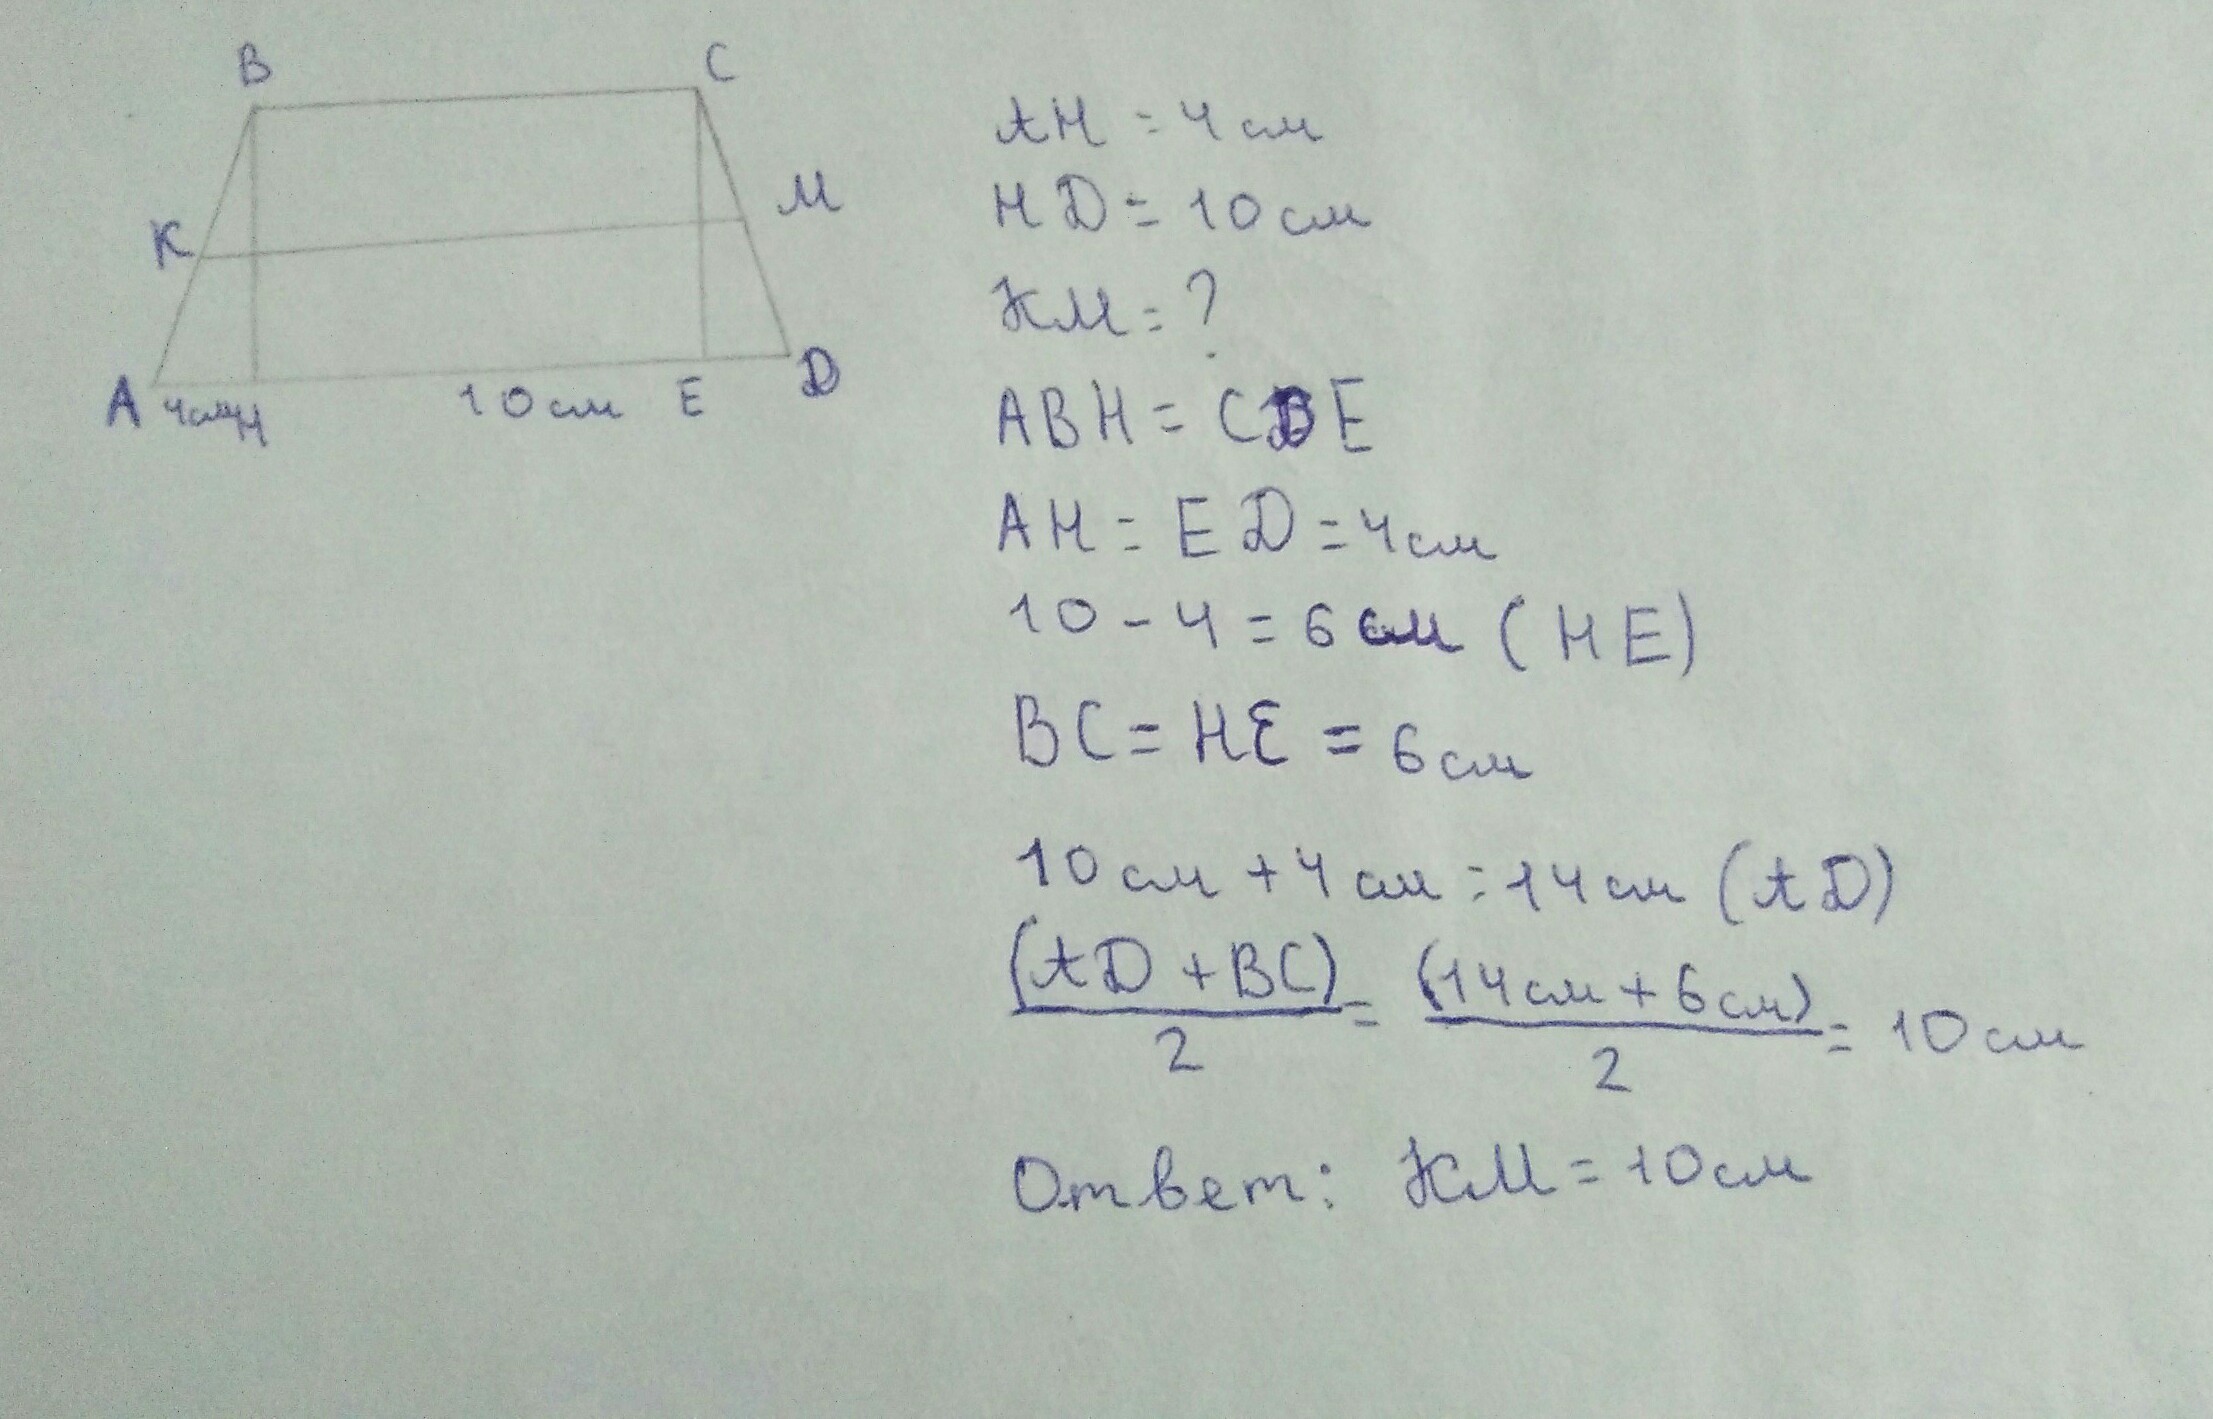 B
C
K
M
A 4см H
10см
E
D
AH = 4см
HD = 10см
KM = ?
ABH = CDE
AH = ED = 4см
10 - 4 = 6 см (HE)
BC = HE = 6см
10см + 4см = 14см (AD)
(AD + BC)/2 = (14см + 6см)/2 = 10см
Ответ: KM = 10см